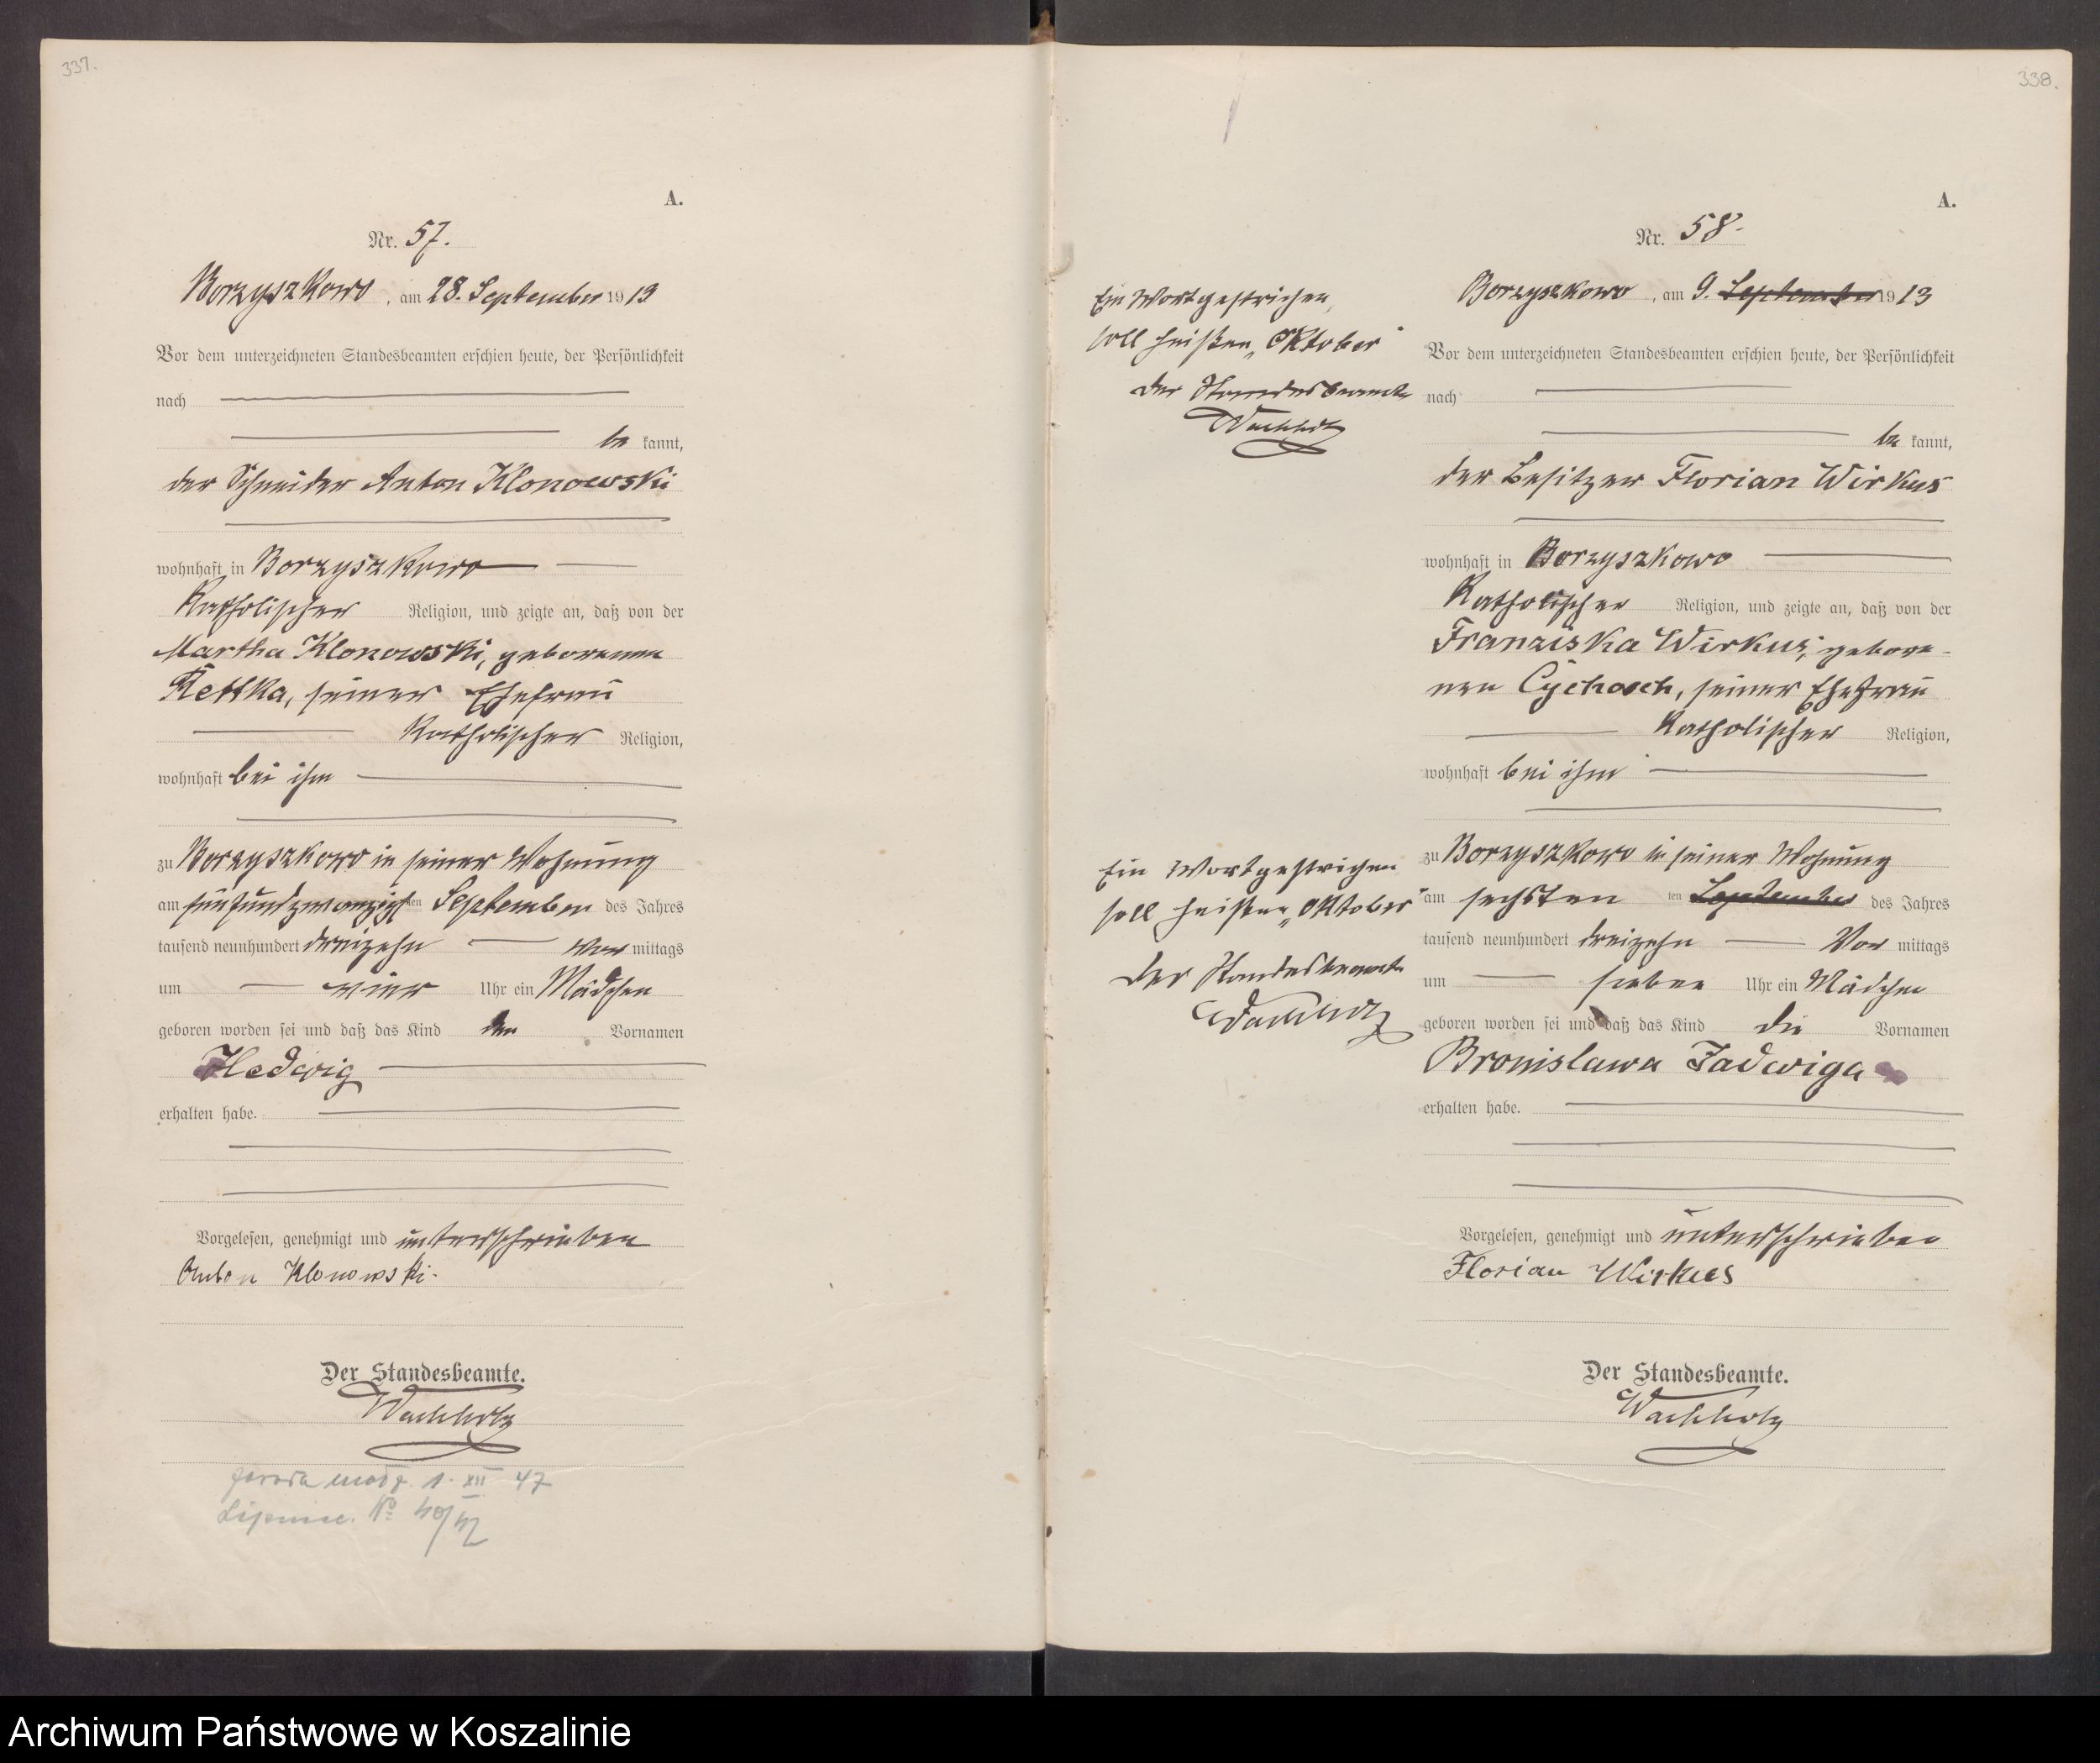 337.
A.
Nr. 57.
Borzyszkowo, am 28. September 1913
Vor dem unterzeichneten Standesbeamten erschien heute, der Persönlichkeit
nach
be kannt,
der Schneider Anton Klonowski
wohnhaft in Borzyszkowo
Katholischer Religion, und zeigte an, daß von der
Martha Klonowski, geborenen
Rettka, seiner Ehefrau
Katholischer Religion,
wohnhaft bei ihm
zu Borzyszkowo in seiner Wohnung
am fünfundzwanzigsten September des Jahres
tausend neunhundert dreizehn Vor mittags
um vier Uhr ein Mädchen
geboren worden sei und daß das Kind den Vornamen
Hedwig
erhalten habe.
Vorgelesen, genehmigt und unterschrieben
Anton Klonowski.
Der Standesbeamte.
Wachholz
1. XII 47
No 40/47
338.
A.
Nr. 58.
Borzyszkowo, am 9. September 1913
Vor dem unterzeichneten Standesbeamten erschien heute, der Persönlichkeit
nach
be kannt,
der Besitzer Florian Wirkus
wohnhaft in Borzyszkowo
Katholischer Religion, und zeigte an, daß von der
Franziska Wirkus, gebore-
nen Cychosch, seiner Ehefrau
Katholischer Religion,
wohnhaft bei ihm
zu Borzyszkowo in seiner Wohnung
am sechsten ten September des Jahres
tausend neunhundert dreizehn Vor mittags
um sieben Uhr ein Mädchen
geboren worden sei und daß das Kind die Vornamen
Bronislawa Jadwiga
erhalten habe.
Vorgelesen, genehmigt und unterschrieben
Florian Wirkus
Der Standesbeamte.
Wachholz
Ein Wort gestrichen,
soll heißen „Oktober"
Der Standesbeamte
Wachholz
Ein Wort gestrichen
soll heißen „Oktober"
Der Standesbeamte
Wachholz
Archiwum Państwowe w Koszalinie